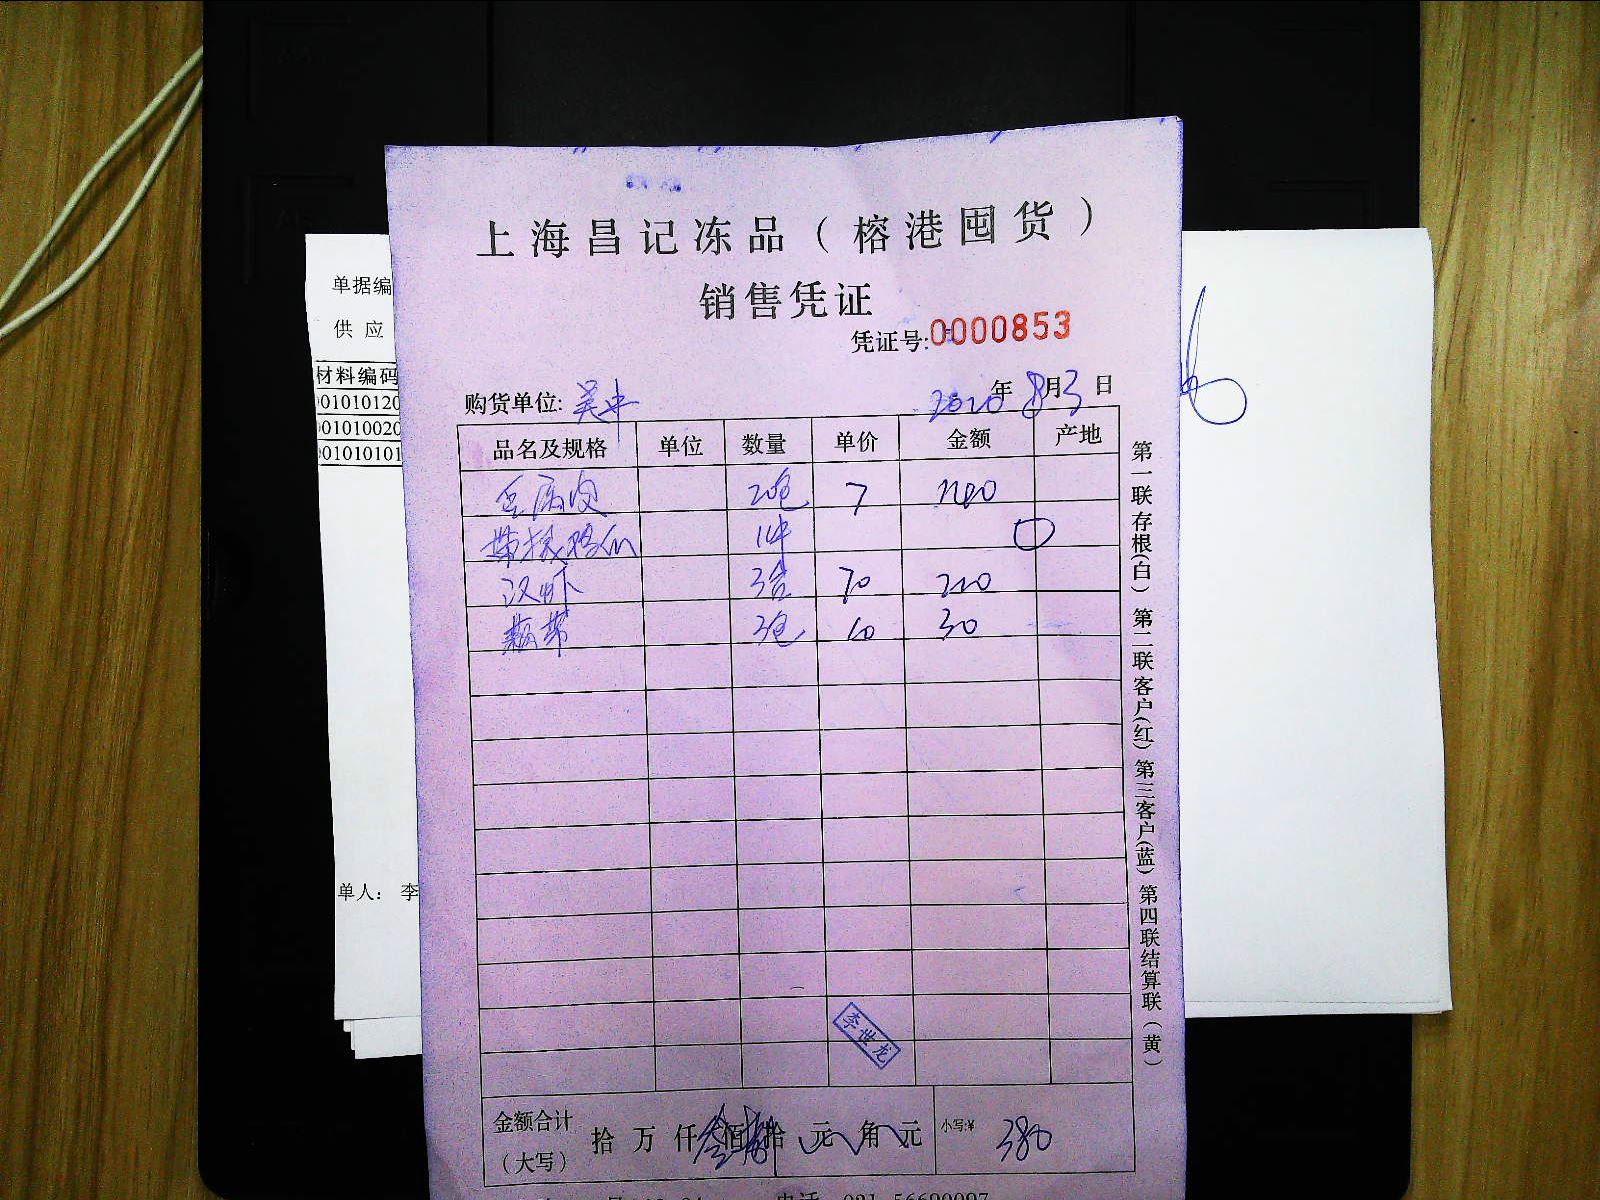 上海昌记冻品（榕港囤货）
销售凭证
凭证号:0000853
购货单位: 吴中 2020年8月3日
品名及规格 单位 数量 单价 金额 产地
豆腐皮 20包 7 140
1件
汉虾 3盒 70 210
3包 10 30
李世龙
金额合计（大写） 拾 万 仟 佰 拾 元 角 元 小写:¥ 380
第一联存根(白) 第二联客户(红) 第三客户(蓝) 第四联结算联（黄）
单据编
供 应
材料编码
01010120
01010020
01010101
单人： 李